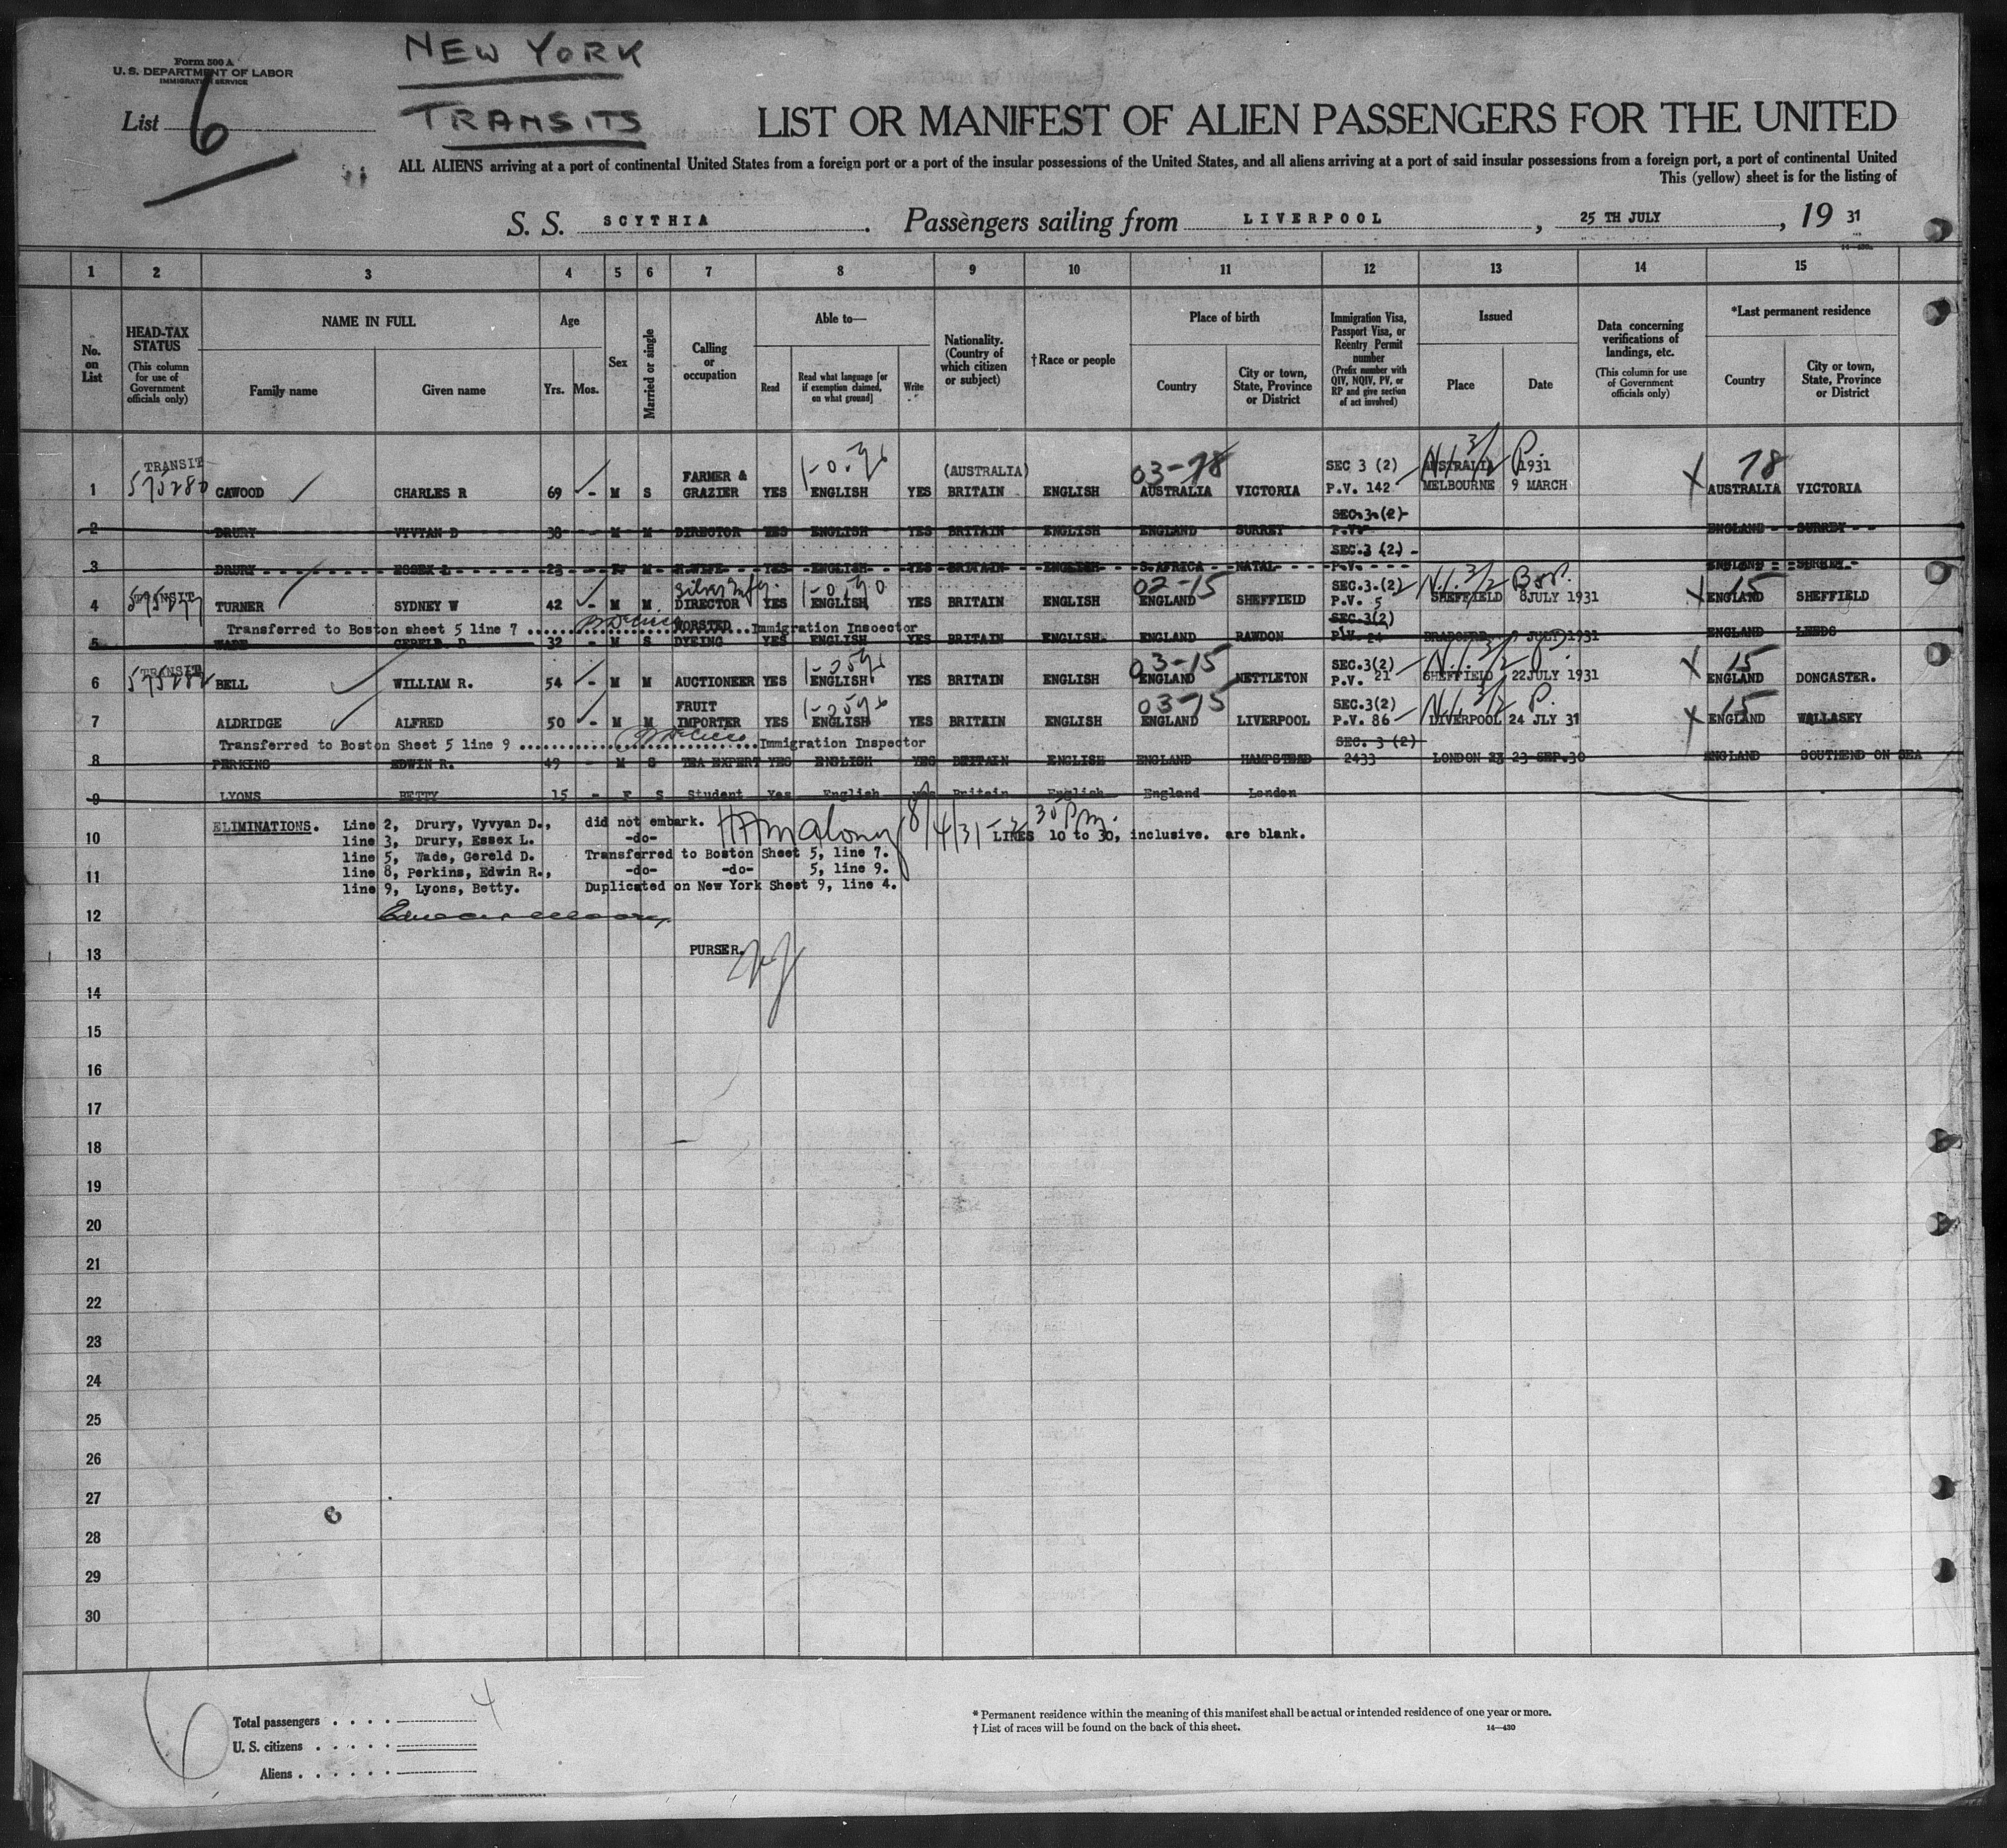 Form 500 A
U. S. DEPARTMENT OF LABOR
IMMIGRATION SERVICE
NEW YORK
TRANSITS
List 6
LIST OR MANIFEST OF ALIEN PASSENGERS FOR THE UNITED
ALL ALIENS arriving at a port of continental United States from a foreign port or a port of the insular possessions of the United States, and all aliens arriving at a port of said insular possessions from a foreign port, a port of continental United
This (yellow) sheet is for the listing of
S. S. SCYTHIA. Passengers sailing from LIVERPOOL, 25 TH JULY, 19 31
14—430a
1 2 3 4 5 6 7 8 9 10 11 12 13 14 15
No. on List
HEAD-TAX STATUS (This column for use of Government officials only)
NAME IN FULL
Family name Given name
Age
Yrs. Mos.
Sex
Married or single
Calling or occupation
Able to—
Read Read what language [or if exemption claimed, on what ground] Write
Nationality. (Country of which citizen or subject)
†Race or people
Place of birth
Country City or town, State, Province or District
Immigration Visa, Passport Visa, or Reentry Permit number (Prefix number with QIV, NQIV, PV, or RP and give section of act involved)
Issued
Place Date
Data concerning verifications of landings, etc. (This column for use of Government officials only)
*Last permanent residence
Country City or town, State, Province or District
TRANSIT FARMER & (AUSTRALIA) 03-78 SEC 3 (2) AUSTRALIA 1931 78
1 575280 CAWOOD CHARLES R 69 - M S GRAZIER YES ENGLISH YES BRITAIN ENGLISH AUSTRALIA VICTORIA P.V. 142 MELBOURNE 9 MARCH X AUSTRALIA VICTORIA
SEC.3.(2)
2 DRURY VYVYAN D 38 - M M DIRECTOR YES ENGLISH YES BRITAIN ENGLISH ENGLAND SURREY P.V. ENGLAND SURREY
SEC.3 (2)
3 DRURY ESSEX L 23 - F M H.WIFE YES ENGLISH YES BRITAIN ENGLISH S.AFRICA NATAL P.V. ENGLAND SURREY
TRANSIT Silver Mfg. 02-15 SEC.3.(2) 15
4 TURNER SYDNEY W 42 - M M DIRECTOR YES ENGLISH YES BRITAIN ENGLISH ENGLAND SHEFFIELD P.V. 5 SHEFFIELD 8JULY 1931 X ENGLAND SHEFFIELD
Transferred to Boston sheet 5 line 7 Immigration Inspector
WORSTED SEC.3(2)
5 WADE GERELD. D 32 - M S DYEING YES ENGLISH YES BRITAIN ENGLISH ENGLAND RAWDON P.V. 24 BRADFORD 9 JULY 1931 ENGLAND LEEDS
TRANSIT 03-15 SEC.3(2) 15
6 575282 BELL WILLIAM R. 54 - M M AUCTIONEER YES ENGLISH YES BRITAIN ENGLISH ENGLAND NETTLETON P.V. 21 SHEFFIELD 22JULY 1931 X ENGLAND DONCASTER.
FRUIT 03-15 SEC.3(2) 15
7 ALDRIDGE ALFRED 50 - M M IMPORTER YES ENGLISH YES BRITAIN ENGLISH ENGLAND LIVERPOOL P.V. 86 LIVERPOOL 24 JLY 31 X ENGLAND WALLASEY
Transferred to Boston Sheet 5 line 9 Immigration Inspector
SEC. 3 (2)
8 PERKINS EDWIN R. 49 - M S TEA EXPERT YES ENGLISH YES BRITAIN ENGLISH ENGLAND HAMPSTEAD 2433 LONDON 23 23 SEP.30 ENGLAND SOUTHEND ON SEA
9 LYONS BETTY 15 - F S Student Yes English yes Britain English England London
ELIMINATIONS. Line 2, Drury, Vyvyan D., did not embark.
10 line 3, Drury, Essex L. -do- LINES 10 to 30, inclusive. are blank.
line 5, Wade, Gereld D. Transferred to Boston Sheet 5, line 7.
11 line 8, Perkins, Edwin R., -do- -do- 5, line 9.
line 9, Lyons, Betty. Duplicated on New York Sheet 9, line 4.
12
13 PURSER.
14
15
16
17
18
19
20
21
22
23
24
25
26
27
28
29
30
Total passengers . . . . 4
U. S. citizens . . . . .
Aliens . . . . . .
* Permanent residence within the meaning of this manifest shall be actual or intended residence of one year or more.
† List of races will be found on the back of this sheet. 14—430